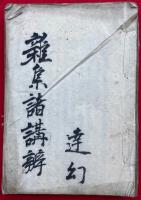 雜集諸講辨
達幻